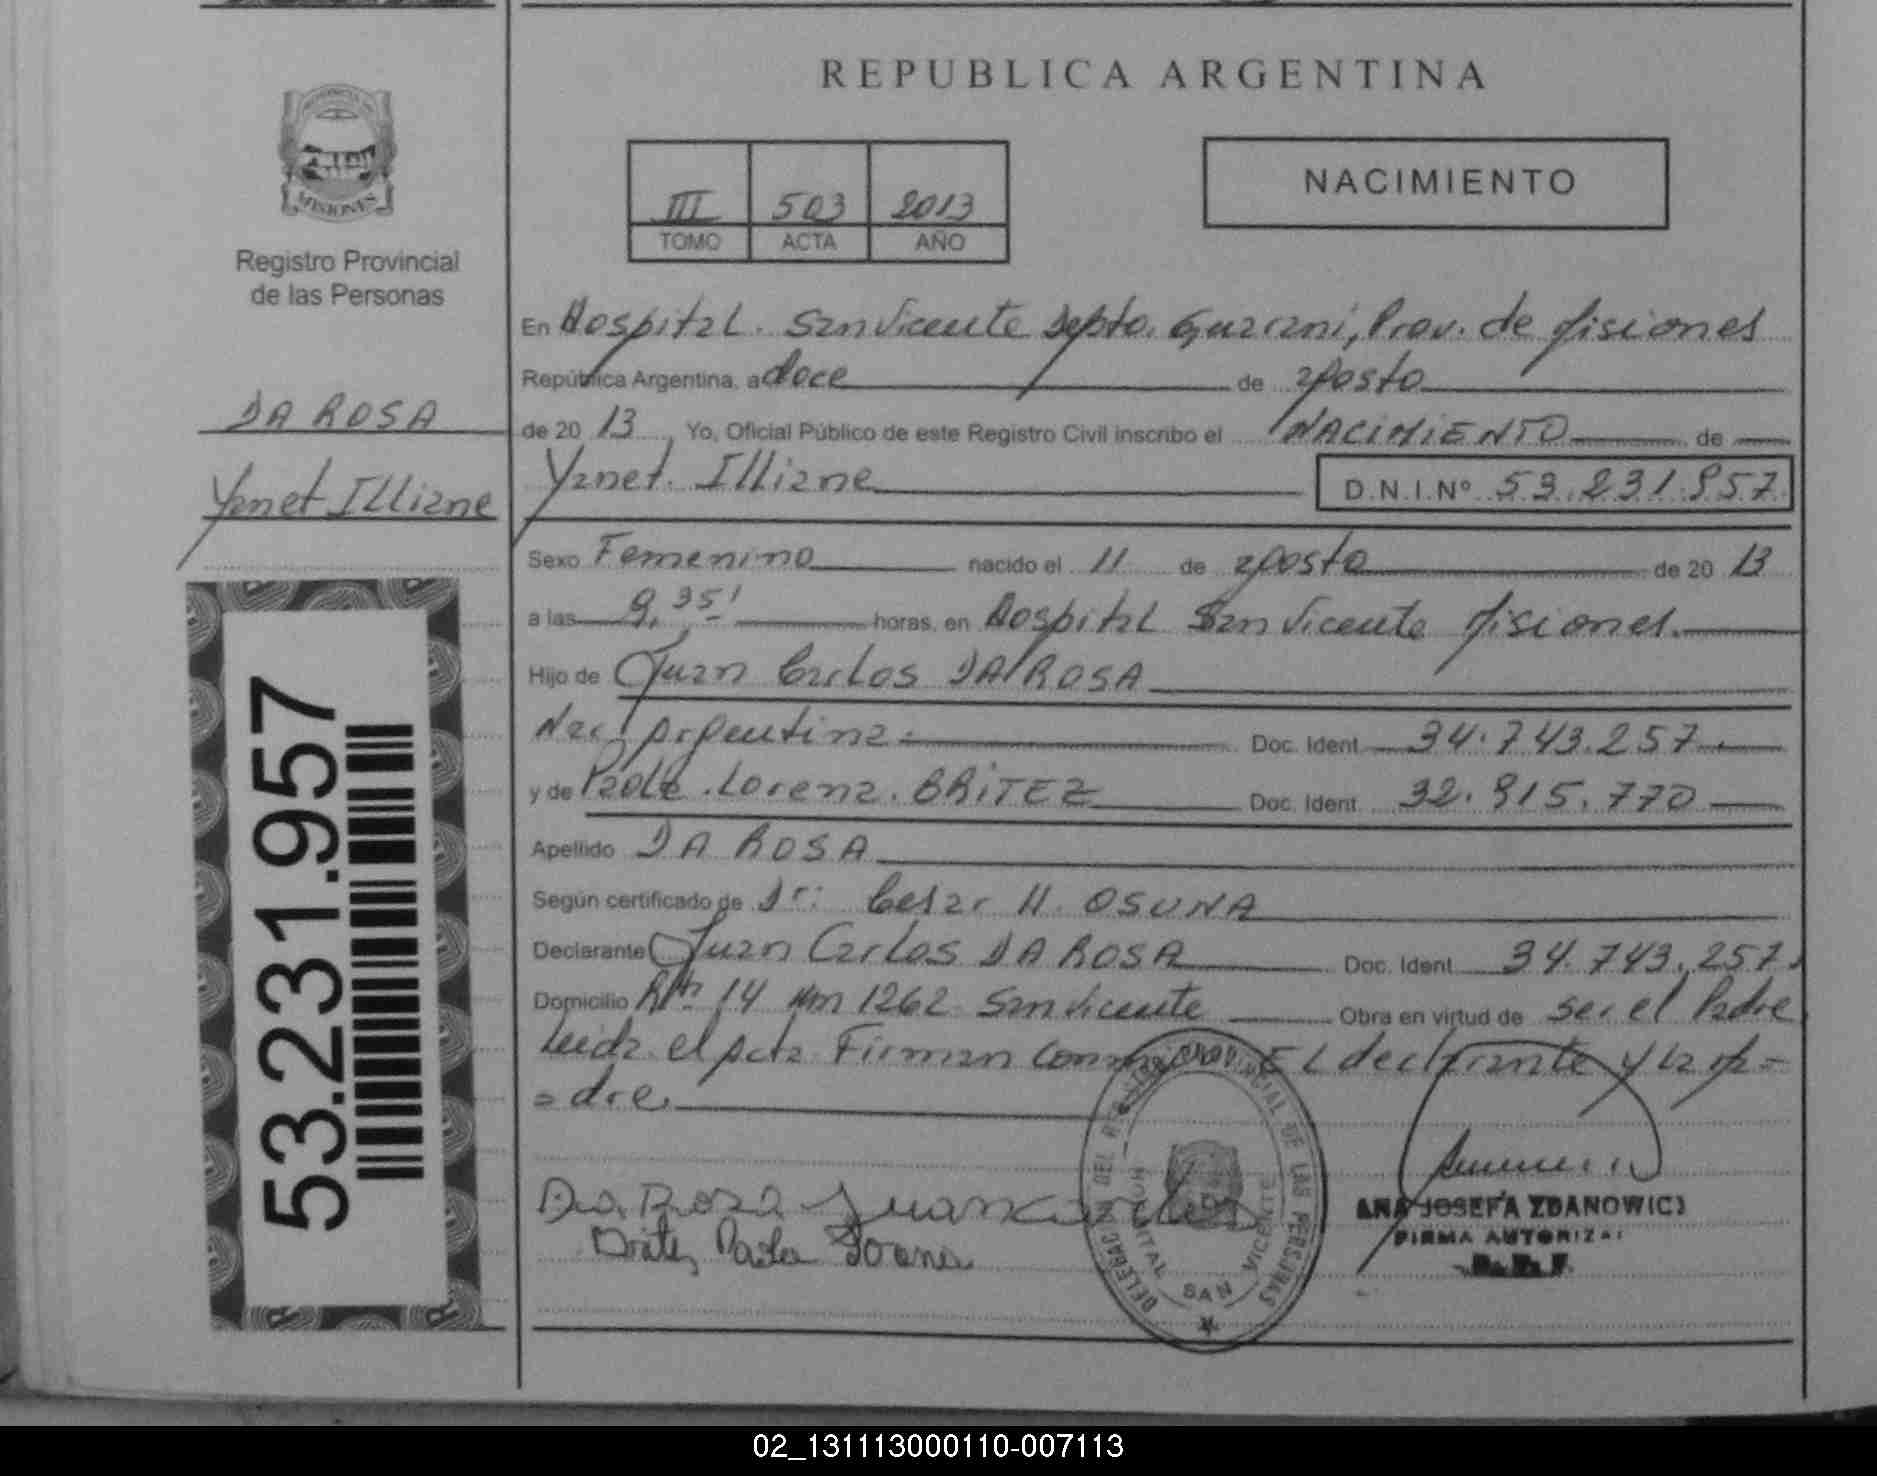 REPUBLICA ARGENTINA
PROVINCIA DE
MISIONES
Registro Provincial
de las Personas
III 503 2013
TOMO ACTA AÑO
NACIMIENTO
DA ROSA
Yanet Illiane
53.231.957
En Hospital. San Vicente Depto. Guarani, Prov. de Misiones
República Argentina, a doce de agosto
de 20 13, Yo, Oficial Público de este Registro Civil inscribo el NACIMIENTO de
Yanet. Illiane D.N.I.Nº 53.231.957
Sexo Femenino nacido el 11 de agosto de 20 13
a las 9,35' horas, en Hospital San Vicente Misiones.
Hijo de Juan Carlos DA ROSA
Nac. Argentina. Doc. Ident. 34.743.257.
y de Paola. Lorena. BRITEZ Doc. Ident. 32.915.770
Apellido DA ROSA
Según certificado de Dr: Cesar H. OSUNA
Declarante Juan Carlos DA ROSA Doc. Ident. 34.743.257.
Domicilio Rta 14 Km 1262 San Vicente Obra en virtud de ser el Padre
Leida el Acta Firman conmigo EL declarante y La Ma=
=dre.
Da Rosa Juan Carlos
Britez Paola Lorena
DELEGACION DEL REGISTRO PROVINCIAL DE LAS PERSONAS
HOSPITAL SAN VICENTE
ANA JOSEFA ZDANOWICZ
FIRMA AUTORIZA
02_131113000110-007113